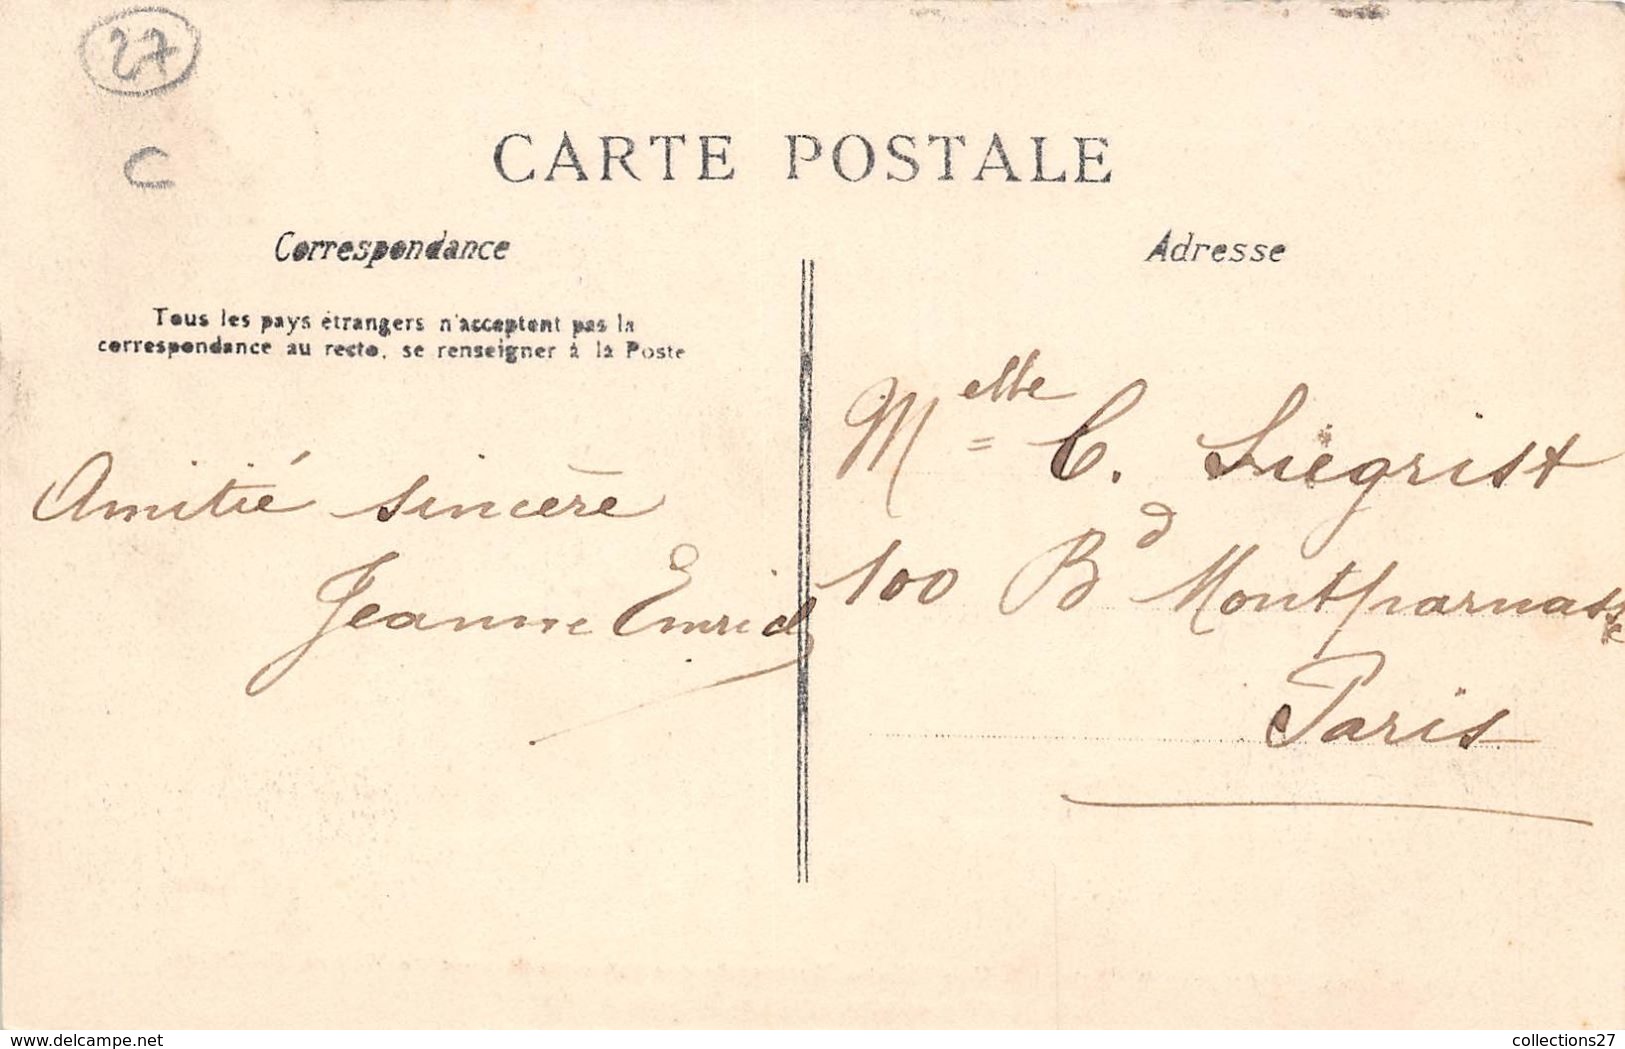 27
C
CARTE POSTALE
Correspondance
Tous les pays étrangers n'acceptent pas la
correspondance au recto, se renseigner à la Poste
Amitié sincère
Jeanne
Adresse
Melle C. Siegrist
100 Bd Montparnasse
Paris
delcampe.net
collections27